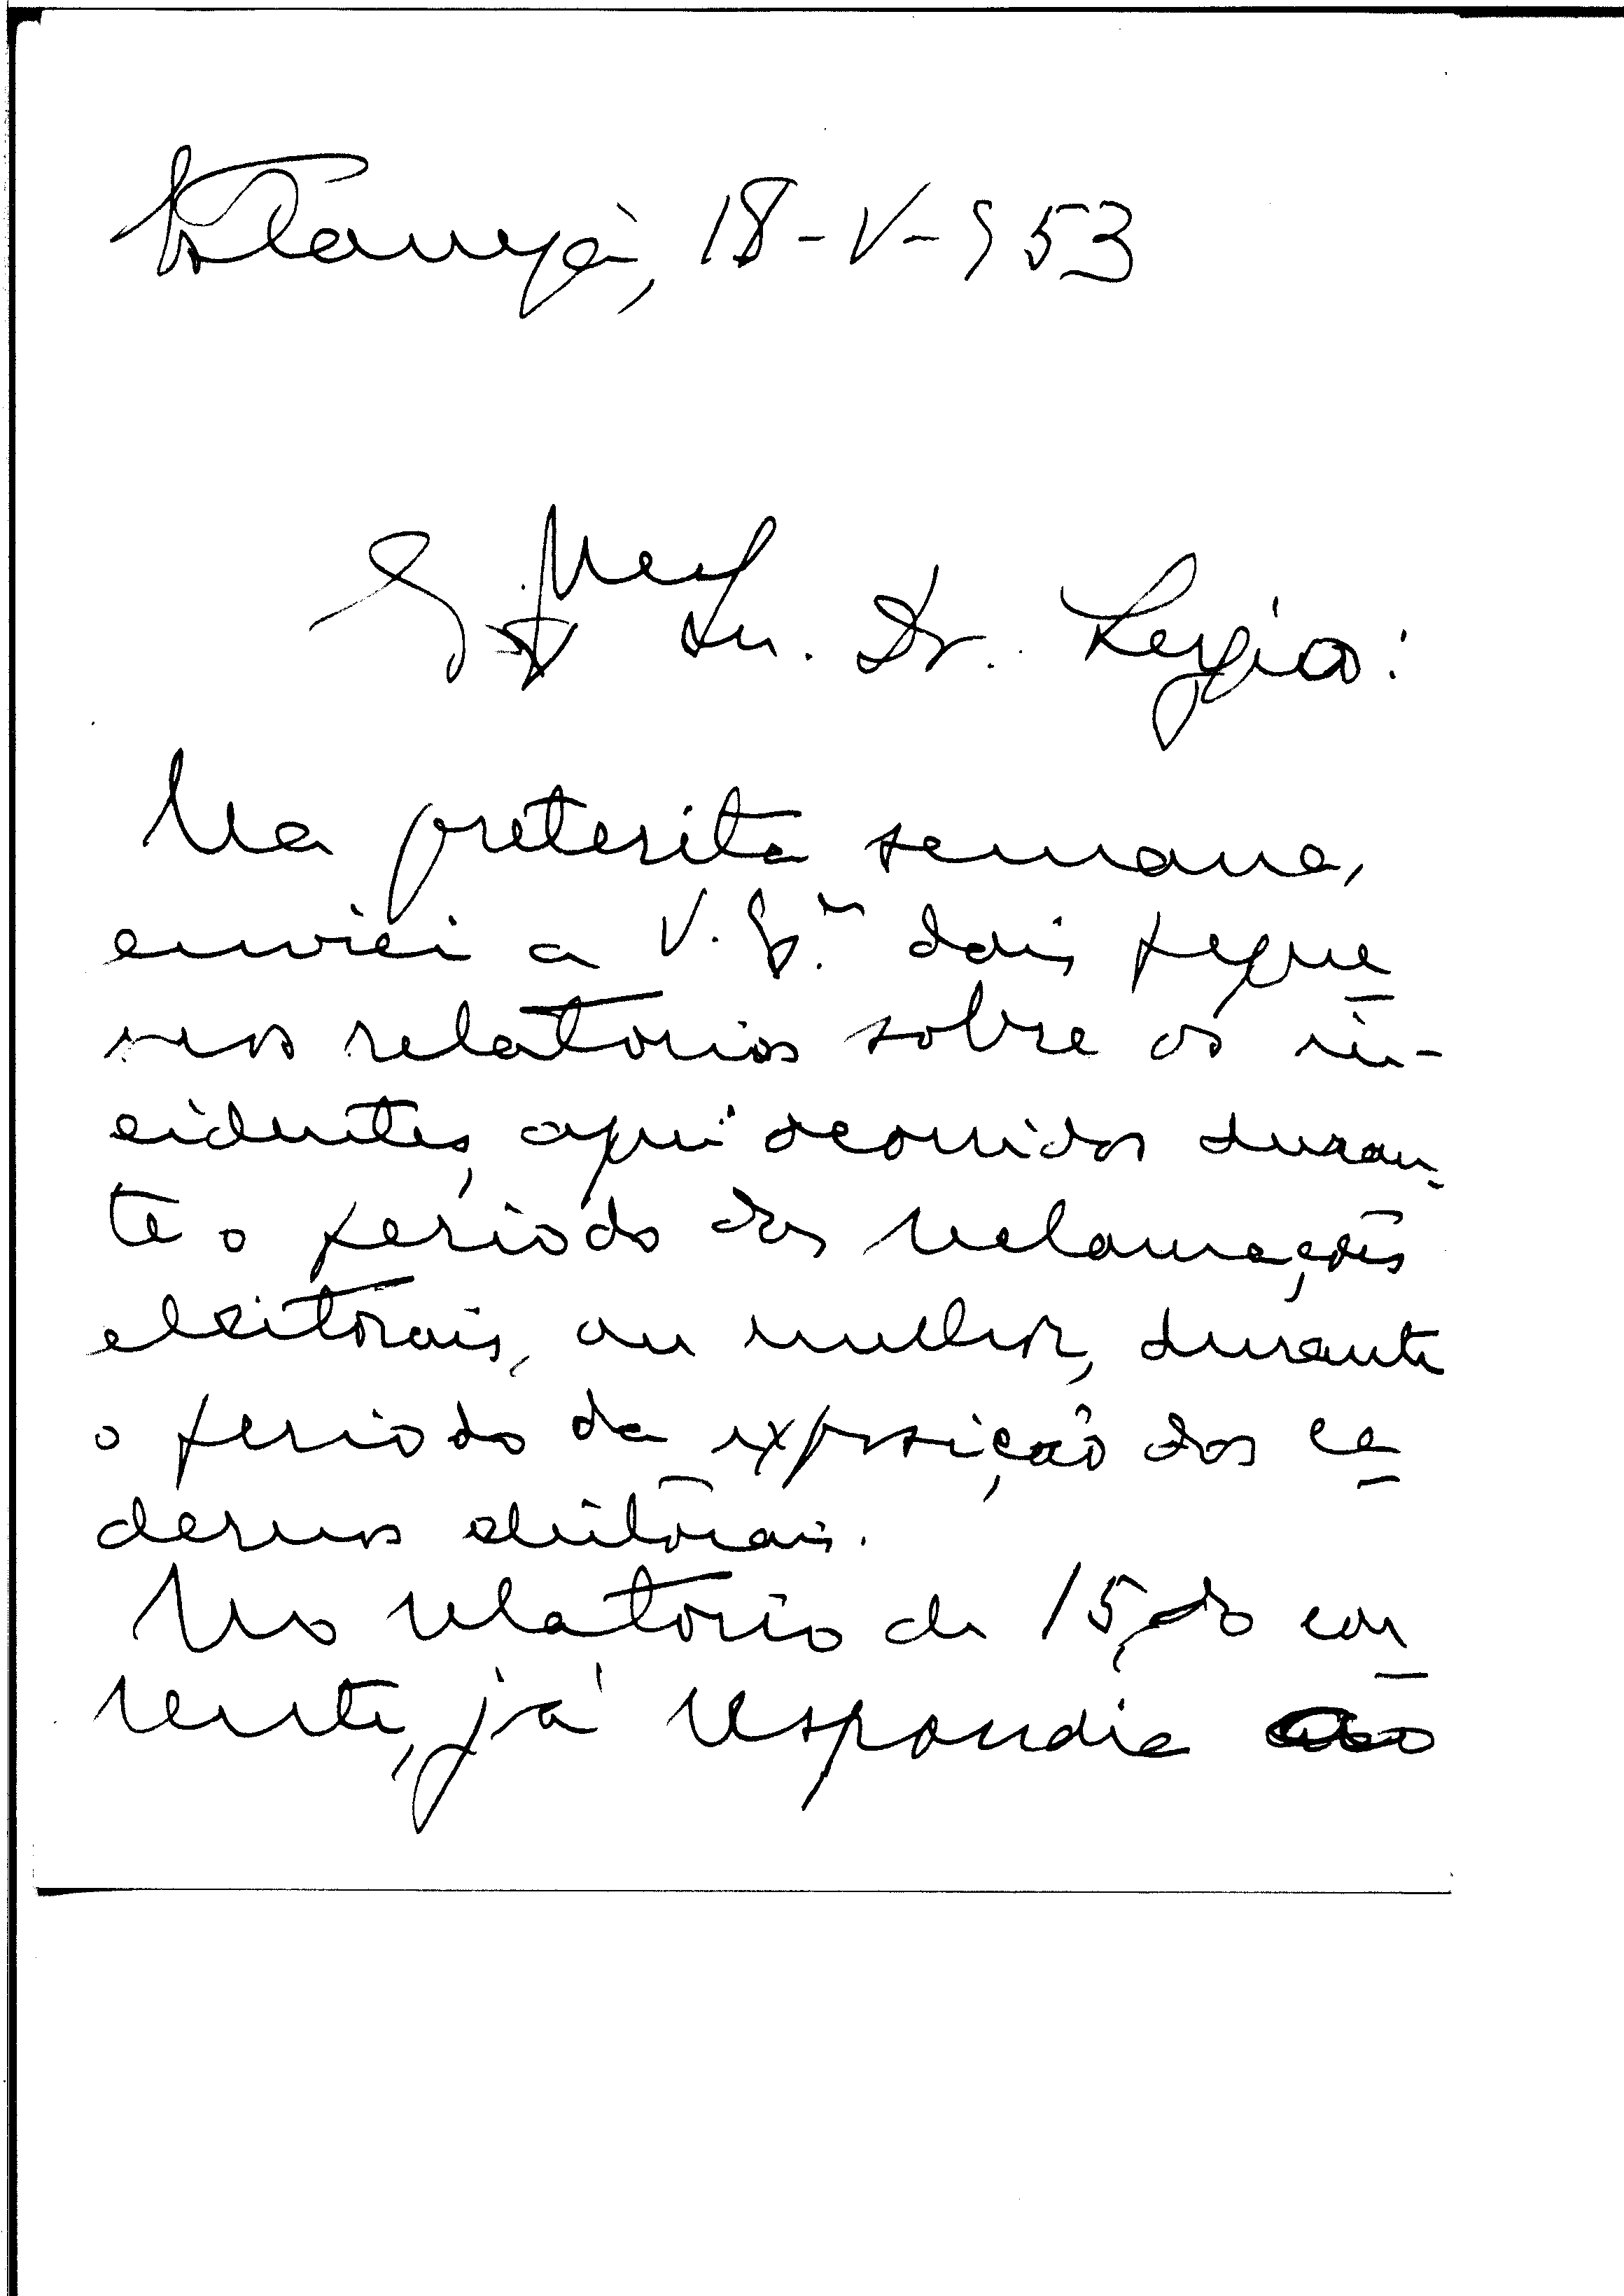 18-V-953
Sr. Dr.
Na preterita semana,
enviei a V. Sª. dois peque
nos relatorios sobre os in-
cidentes, aqui ocorridos duran-
te o periodo das reclamações
eleitorais, ou melhor, durante
o periodo da exposição dos ca
dernos eleitorais.
No relatorio de 15, do cor
rente, já respondia ao